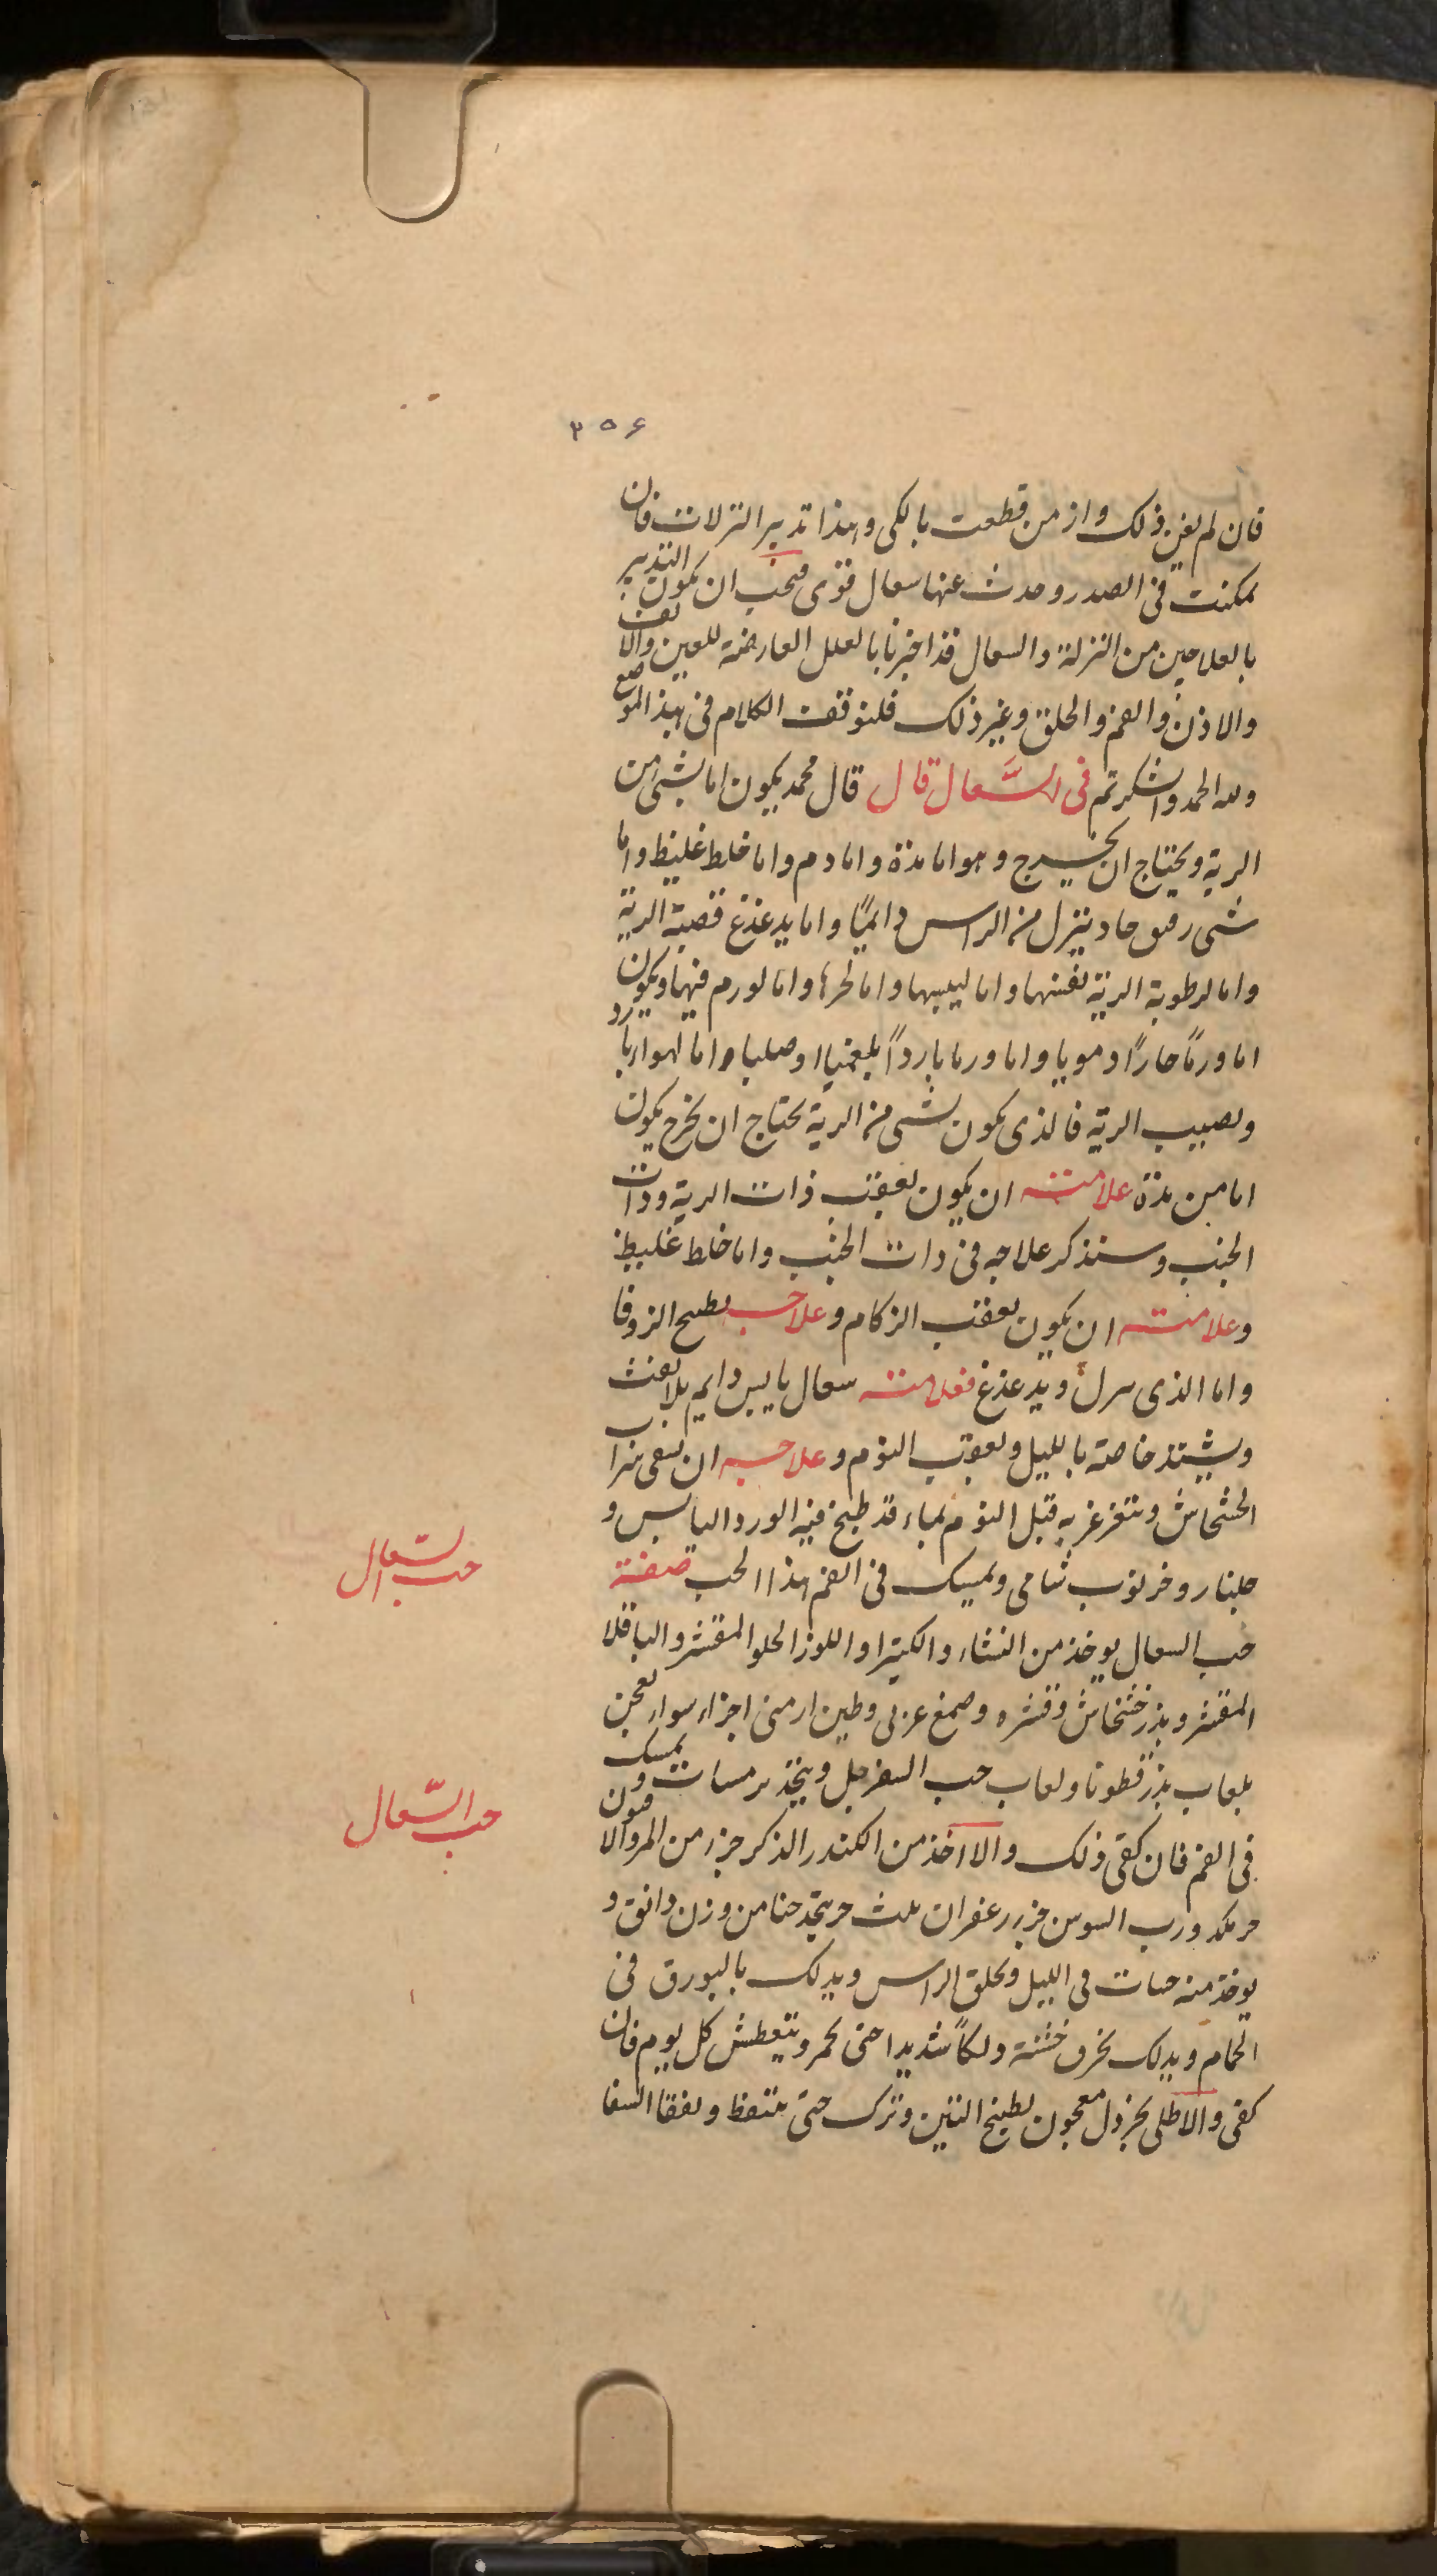 ۳۵۶
فان لم یغن ذلک وازمن قطعت بالکی وهذا تدبیر النزلات فان
تمکنت فی الصدر وحدث عنها سعال قوی فیجب ان یکون التدبیر
بالعلاجین من النزلة والسعال قد اخبرنا بالعلل العارضة للعین والانف
والاذن والفم والحلق وغیر ذلک فلنوقف الکلام فی هذا الموضع
ولله الحمد والشکر تم فی السَّعال قال قال محمد یکون اما بشی من
الریة ویحتاج ان یخرج وهو اما مدة واما دم واما خلط غلیظ واما
شی رقیق حاد ینزل من الراس دایمًا واما یدغدغ قصبة الریة
واما لرطوبة الریة نفسها واما لیبسها واما لحرها واما لورم فیها ویکون
اما ورمًا حارًا دمویا واما ورما باردًا بلغمیا او صلبا واما لهوا بارد
ویصیب الریة فالذی یکون بشی من الریة یحتاج ان یخرج یکون
اما من مدة علامته ان یکون بعقب ذات الریة وذات
الجنب وسنذکر علاجه فی ذات الجنب واما خلط غلیظ
وعلامته ان یکون بعقب الزکام وعلاجه بطبیخ الزوفا
واما الذی ینزل ویدغدغ فعلامته سعال یابس دایم بلا نفث
ویشتد خاصة باللیل وبعقب النوم وعلاجه ان یسقی شراب
الخشخاش ویتغرغر به قبل النوم بماء قد طبخ فیه الورد الیابس و
جلنار وخرنوب شامی ویمسک فی الفم هذا الحب صفته
حب السعال
حب السعال یوخذ من النشاء والکثیرا واللوز الحلو المقشر والباقلا
المقشر وبذر خشخاش وقشره وصمغ عربی وطین ارمنی اجزاء سواء یعجن
بلعاب بذر قطونا ولعاب حب السفرجل ویتخذ ترمسات ویمسک
حب السّعال
فی الفم فان کفی ذلک والا اخذ من الکندر الذکر جزء من المر والافیون
جر ورب السوس جزء زعفران ثلث جر یتخذ حبا من وزن دانق و
یوخذ منه حبات فی اللیل ویحلق الراس ویدلک بالبورق فی
الحمام ویدلک بخرق خشنة دلکاً شدیدا حتی یحمر ویتعطش کل یوم فان
کفی والا طلی بخردل معجون بطبیخ التین وترک حتی یتنفط ویفقا النفا